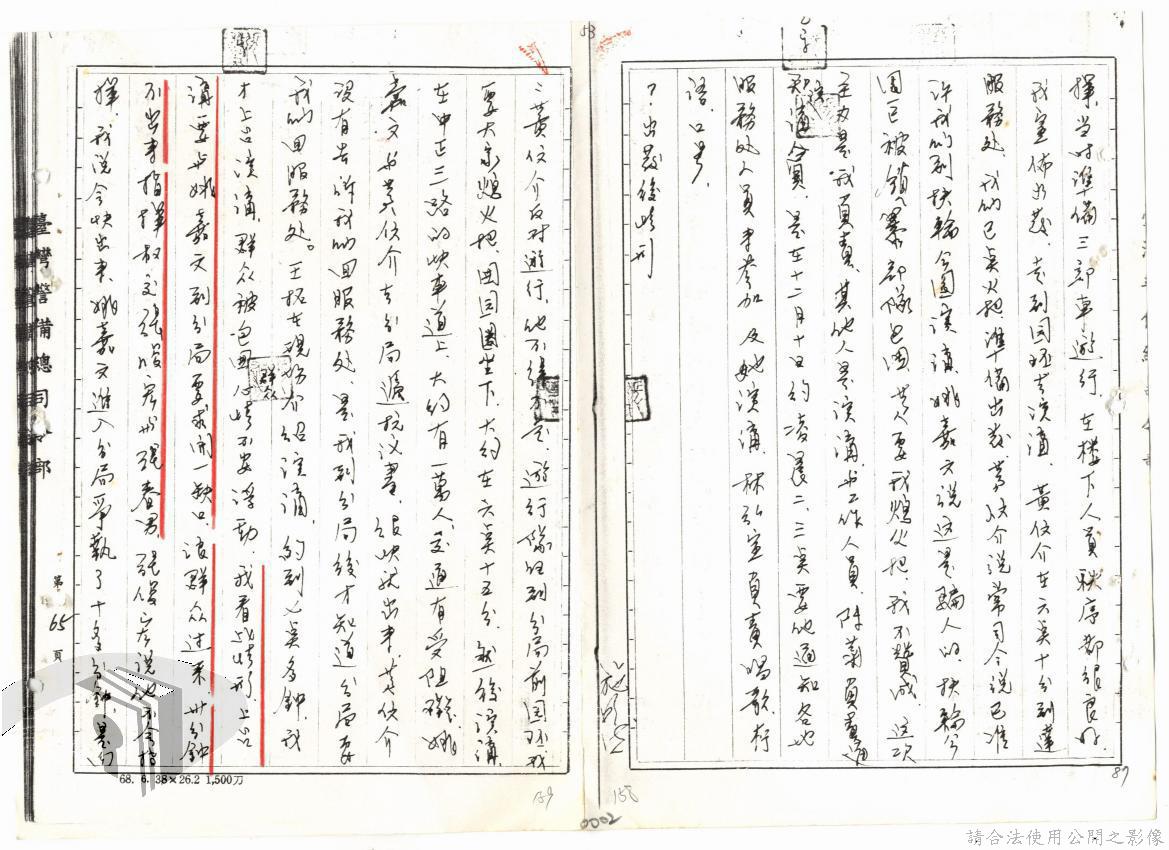 揮，当时準備三部車遊行，在楼下人員秩序都很良好，
我宣佈出發，走到园环去演講，黃信介在六点十分到達
服務处，我们已点火把準備出發，黃信介說常司令說已准
许我们到扶輪公園演講，姚嘉文說这是騙人的，扶輪公
園已被鎮暴部隊包围，黃信介要我熄火把，我不贊成，这次
主力是我負責，其他人是演講与工作人員，陳菊負責通
知演講人員，是在十二月十日約凌晨二、三点要他通知各地
服務处人員来参加及她演講，林弘宣負責唱歌，
語、口号。
7.出發後情形
：黃信介反对遊行，遊行隊伍到分局前园环，我
要大家熄火把，围园圈坐下，大約在六点十五分，然後演講
在中正三路的快車道上，大約有一萬人，交通有受阻礙，姚
嘉文与黃信介去分局遞抗议書，很快就出来，黃信介
沒有告訴我们回服務处，是我到分局後才知道分局要
我们回服務处。王拓在現场介紹演講，約到七点多鐘，我
才上台演講，群众被包围心情不安浮動，我看此情形，上台
講要与姚嘉文到分局要求開一缺口，讓群众过来，卅分鐘
不出来指揮权交張俊宏与張春男，張俊宏說他不会指
揮，我說会快出来，姚嘉文進入分局爭執了十多分鐘，
群众
臺灣警備總司令部
第65頁
68. 6. 38×26.2 1,500刀
施明德
53
87
158
159
0002
請合法使用公開之影像